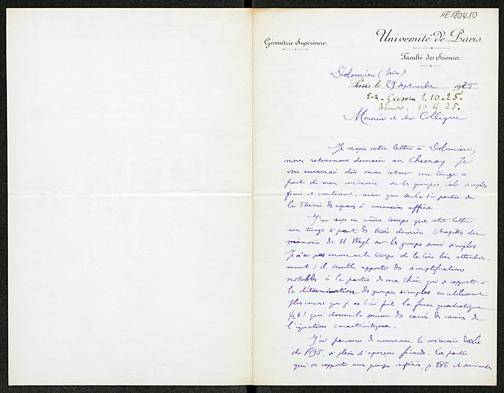 HE1804.10
Géométrie Supérieure.
Université de Paris.
Faculté des Sciences.
Dolomieu (Isère)
Paris le 29 septembre 1925
1.10.25.
Monsieur et cher Collègue
Je reçois votre lettre à Dolomieu,
nous retournons demain au Chesnay. Je
vous enverrai dès mon retour un tirage à
part de mon mémoire sur les groupes réels simples
finis et continus, ainsi que de la partie de
la Théorie des espaces à connexion affine.
J'ai reçu en même temps que votre lettre
un tirage à part des trois derniers chapitres du
mémoire de H Weyl sur les groupes semi simples
Je n'ai pas encore eu le temps de le lire bien attentive-
ment; il semble apporter des simplifications
notables à la partie de ma thèse qui se rapporte à
la détermination des groupes simples en utilisant
plus encore que je ne l'ai fait la forme quadratique
qui donne la somme des carrés des racines de
l'équation caractéristique.
J'ai parcouru de nouveau le mémoire
de 1895, si plein d'aperçus féconds. La partie
qui se rapporte aux groupes infinis, p et suivantes